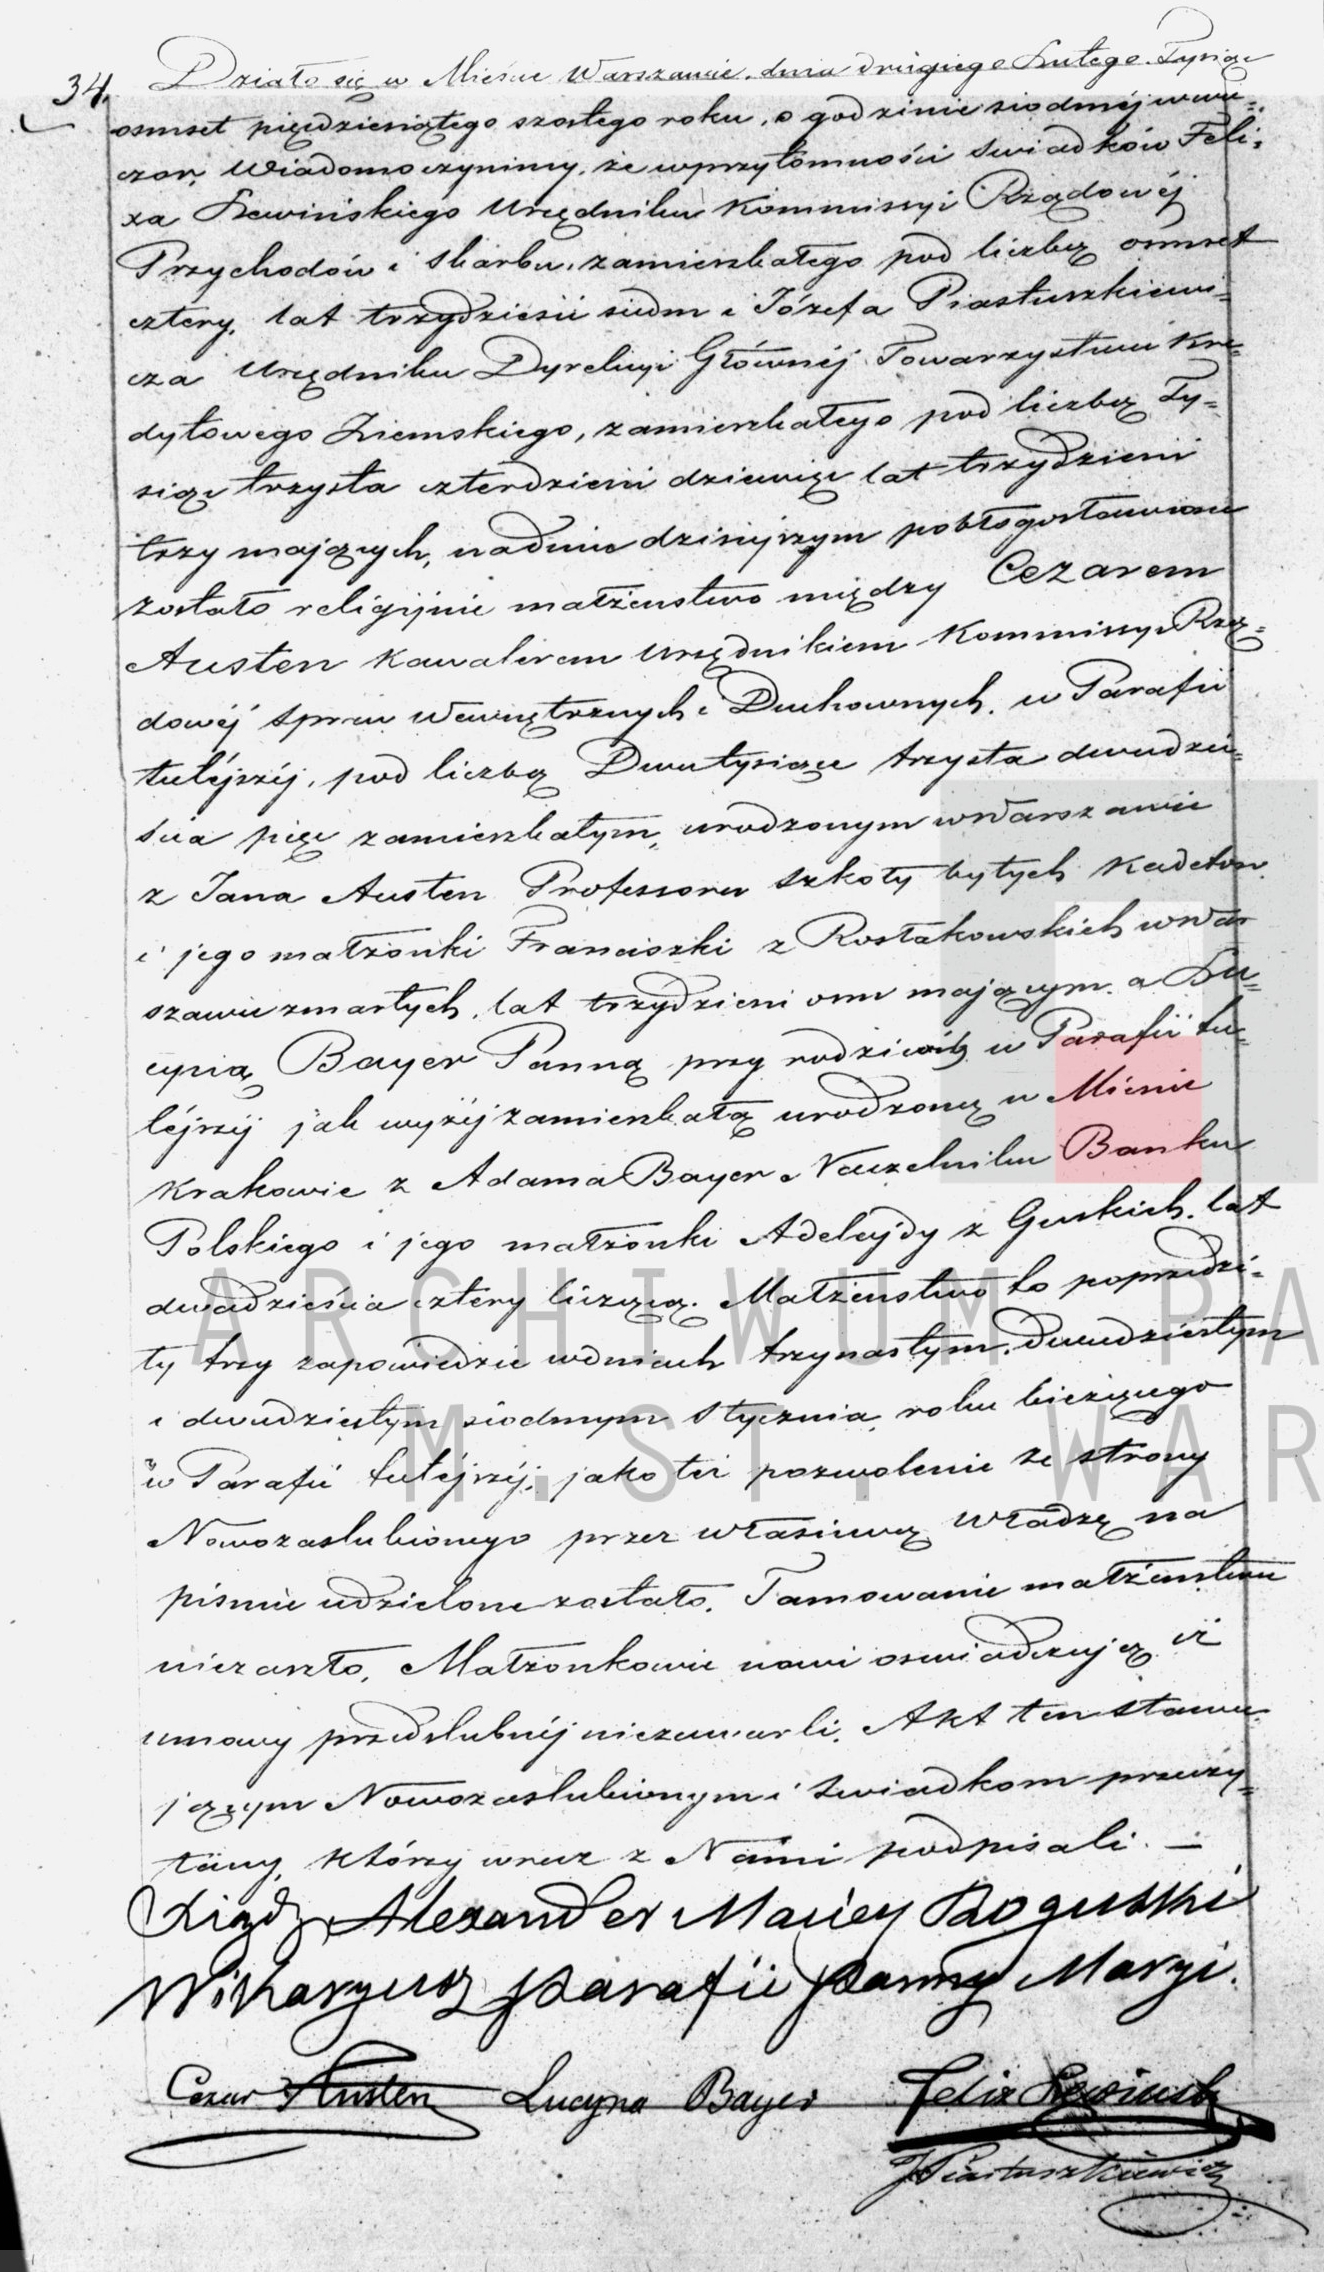 34. Działo się w Mieście Warszawie, dnia drugiego Lutego Tysiąc
osmset pięćdziesiątego szostego roku, o godzinie siodmej wwie=
czor, Wiadomo czynimy, że wprzytomności świadków Feli=
xa Lewińskiego Urzędnika Kommissyi Rządowéj
Przychodów i Skarbu, zamieszkałego pod liczbą ośmset
cztery, lat trzydzieści siedm i Józefa Piastuszkiewi=
cza Urzędnika Dyrekcyi Głównéj Towarzystwa Kre=
dytowego Ziemskiego, zamieszkałego pod liczbą Ty=
siąc trzysta czterdzieści dziewięć lat trzydzieści
trzy mających, nadniu dzisiejszym pobłogosławione
zostało religijnie małżeństwo między Cezarem
Austen Kawalerem Urzędnikiem Kommissyi Rzą=
dowéj Spraw Wewnętrznych i Duchownych, w Parafii
tutéjszéj, pod liczbą Dwatysiące trzysta dwadzie=
ścia pięć zamieszkałym, urodzonym w Warszawie
z Jana Austen Professora Szkoły byłych Kadetów
i jego małżonki Franciszki z Rostakowskich w War
szawie zmarłych, lat trzydzieści osm mającym, a Lu=
cyną Bayer Panną przy rodzicach w Parafii tu=
téjszéj jak wyżéj zamieszkałą urodzoną w Mieście
Krakowie z Adama Bayer Naczelnika Banku
Polskiego i jego małżonki Adelajdy z Guskich, lat
dwadzieścia cztery liczącą. Małżeństwo to poprzedzi=
ły trzy zapowiedzie wdniach trzynastym, dwudziestym
i dwudziestym siodmym Stycznia, roku bieżącego
w Parafii tutéjszéj, jako też pozwolenie ze strony
Nowozaslubionego przez właściwą Władzę na
piśmie udzielone zostało. Tamowanie małżeństwa
niezaszło, Małżonkowie nowi oswiadczają iż
umowy przedślubnéj niezawarli. Akt ten stawa=
jącym Nowozaslubionym i Swiadkom przeczy=
tany, którzy wraz z Nami podpisali. —
Xiądz Alexander Maciey Rogulski
Wikaryusz parafii Panny Maryi.
Cezar Austen Lucyna Bayer Felix Lewiński
J Piastuszkiewicz
ARCHIWUM PA
M. ST. WAR